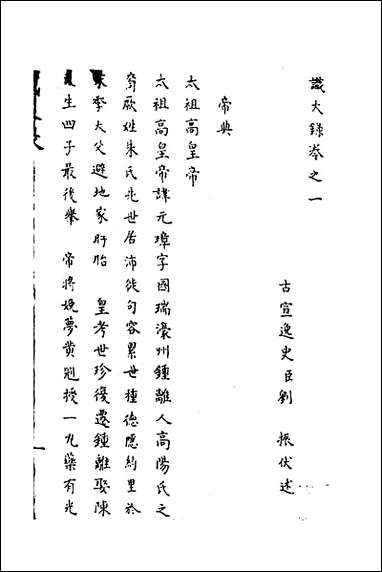 識大錄卷之一
古宣逸史臣劉 振伏述
帝典
太祖高皇帝
太祖高皇帝諱元璋字國瑞濠州鍾離人高陽氏之
裔厥姓朱氏先世居沛徙句容累世種德隱約里於
宋季大父避地家盱眙 皇考世珍後遷鍾離娶陳
生四子最後舉 帝將娩夢黃冠授一丸藥有光